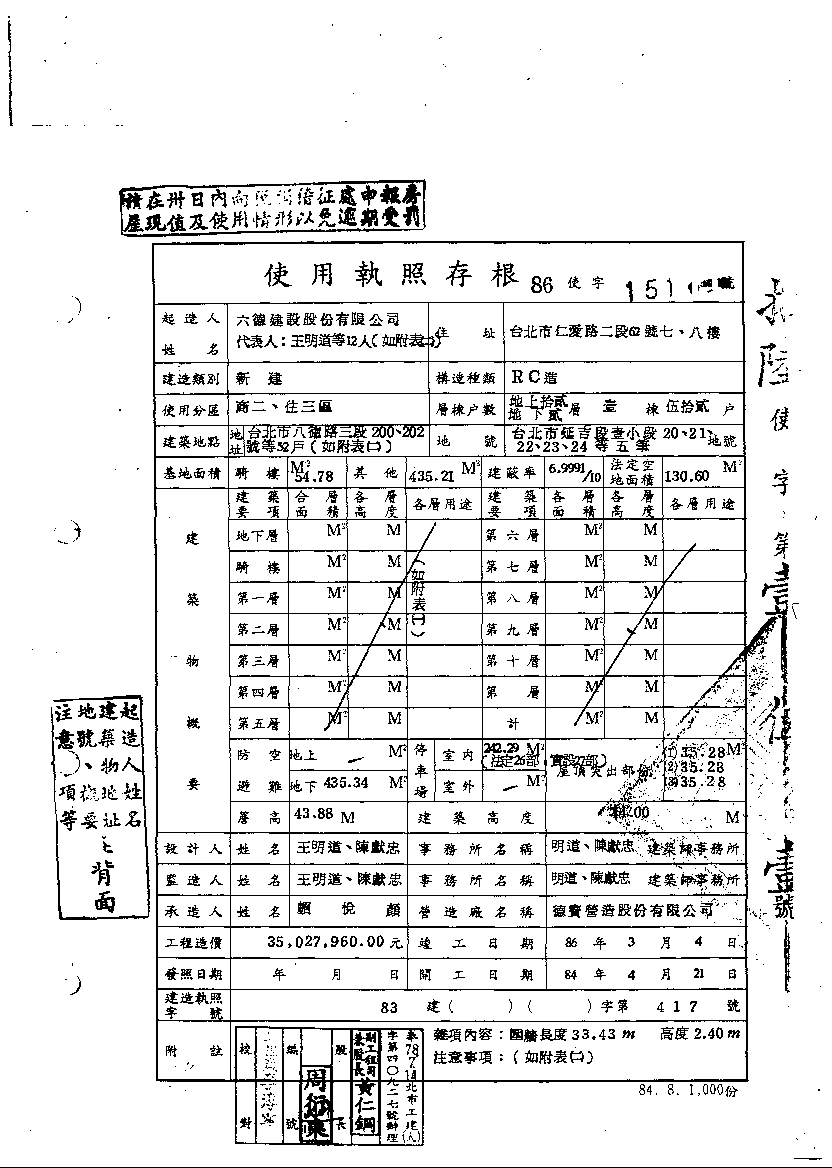 積在卅日內向 處申報房
屋現值及使用情形以免逾期受罰
使用執照存根 86 使字 151 號
起造人姓名 六德建設股份有限公司
代表人：王明道等12人(如附表㈡) 住址 台北市仁愛路二段62號七、八樓
建造類別 新建 構造種類 RC造
使用分區 商二、住三區 層棟戶數 地上拾貳 地下貳 層 壹 棟 伍拾貳 戶
建築地點 地址 台北市八德路三段200、202號等52戶(如附表㈡) 地號 台北市延吉段壹小段20、21、22、23、24等五筆 地號
基地面積 騎樓 54.78 M² 其他 435.21 M² 建蔽率 6.9991/10 法定空地面積 130.60 M²
建築物概要
建築要項 合層面積 各層高度 各層用途 建築要項 各層面積 各層高度 各層用途
地下層 M² M 第六層 M² M
騎樓 M² M 第七層 M² M
第一層 M² M 第八層 M² M
第二層 M² M 第九層 M² M
第三層 M² M 第十層 M² M
第四層 M² M 第 層 M² M
第五層 M² M 計 M² M
(如附表㈠)
防空避難 地上 M² 停車場 室內 242.29 M² (法定26部 實設27部) 屋頂突出部份 (1)35.28 M²
(2)35.28
(3)35.28
地下 435.34 M² 室外 M²
簷高 43.88 M 建築高度 M
設計人 姓名 王明道、陳獻忠 事務所名稱 明道、陳獻忠 建築師事務所
監造人 姓名 王明道、陳獻忠 事務所名稱 明道、陳獻忠 建築師事務所
承造人 姓名 賴悅顏 營造廠名稱 德寶營造股份有限公司
工程造價 35,027,960.00元 竣工日期 86年3月4日
發照日期 年 月 日 開工日期 84年4月21日
建造執照字號 83 建( )( )字第 417 號
附註 雜項內容：圍牆長度33.43m 高度2.40m
注意事項：(如附表㈡)
校對 編號 股長
副工程司
兼股長 黃仁鋼
78.7.14北市工建(人)
字第四〇九二七號辦理
84.8.1,000份
起造人姓名
建築物地址
地號、概要
注意事項等
背面
陸使字第壹 壹號